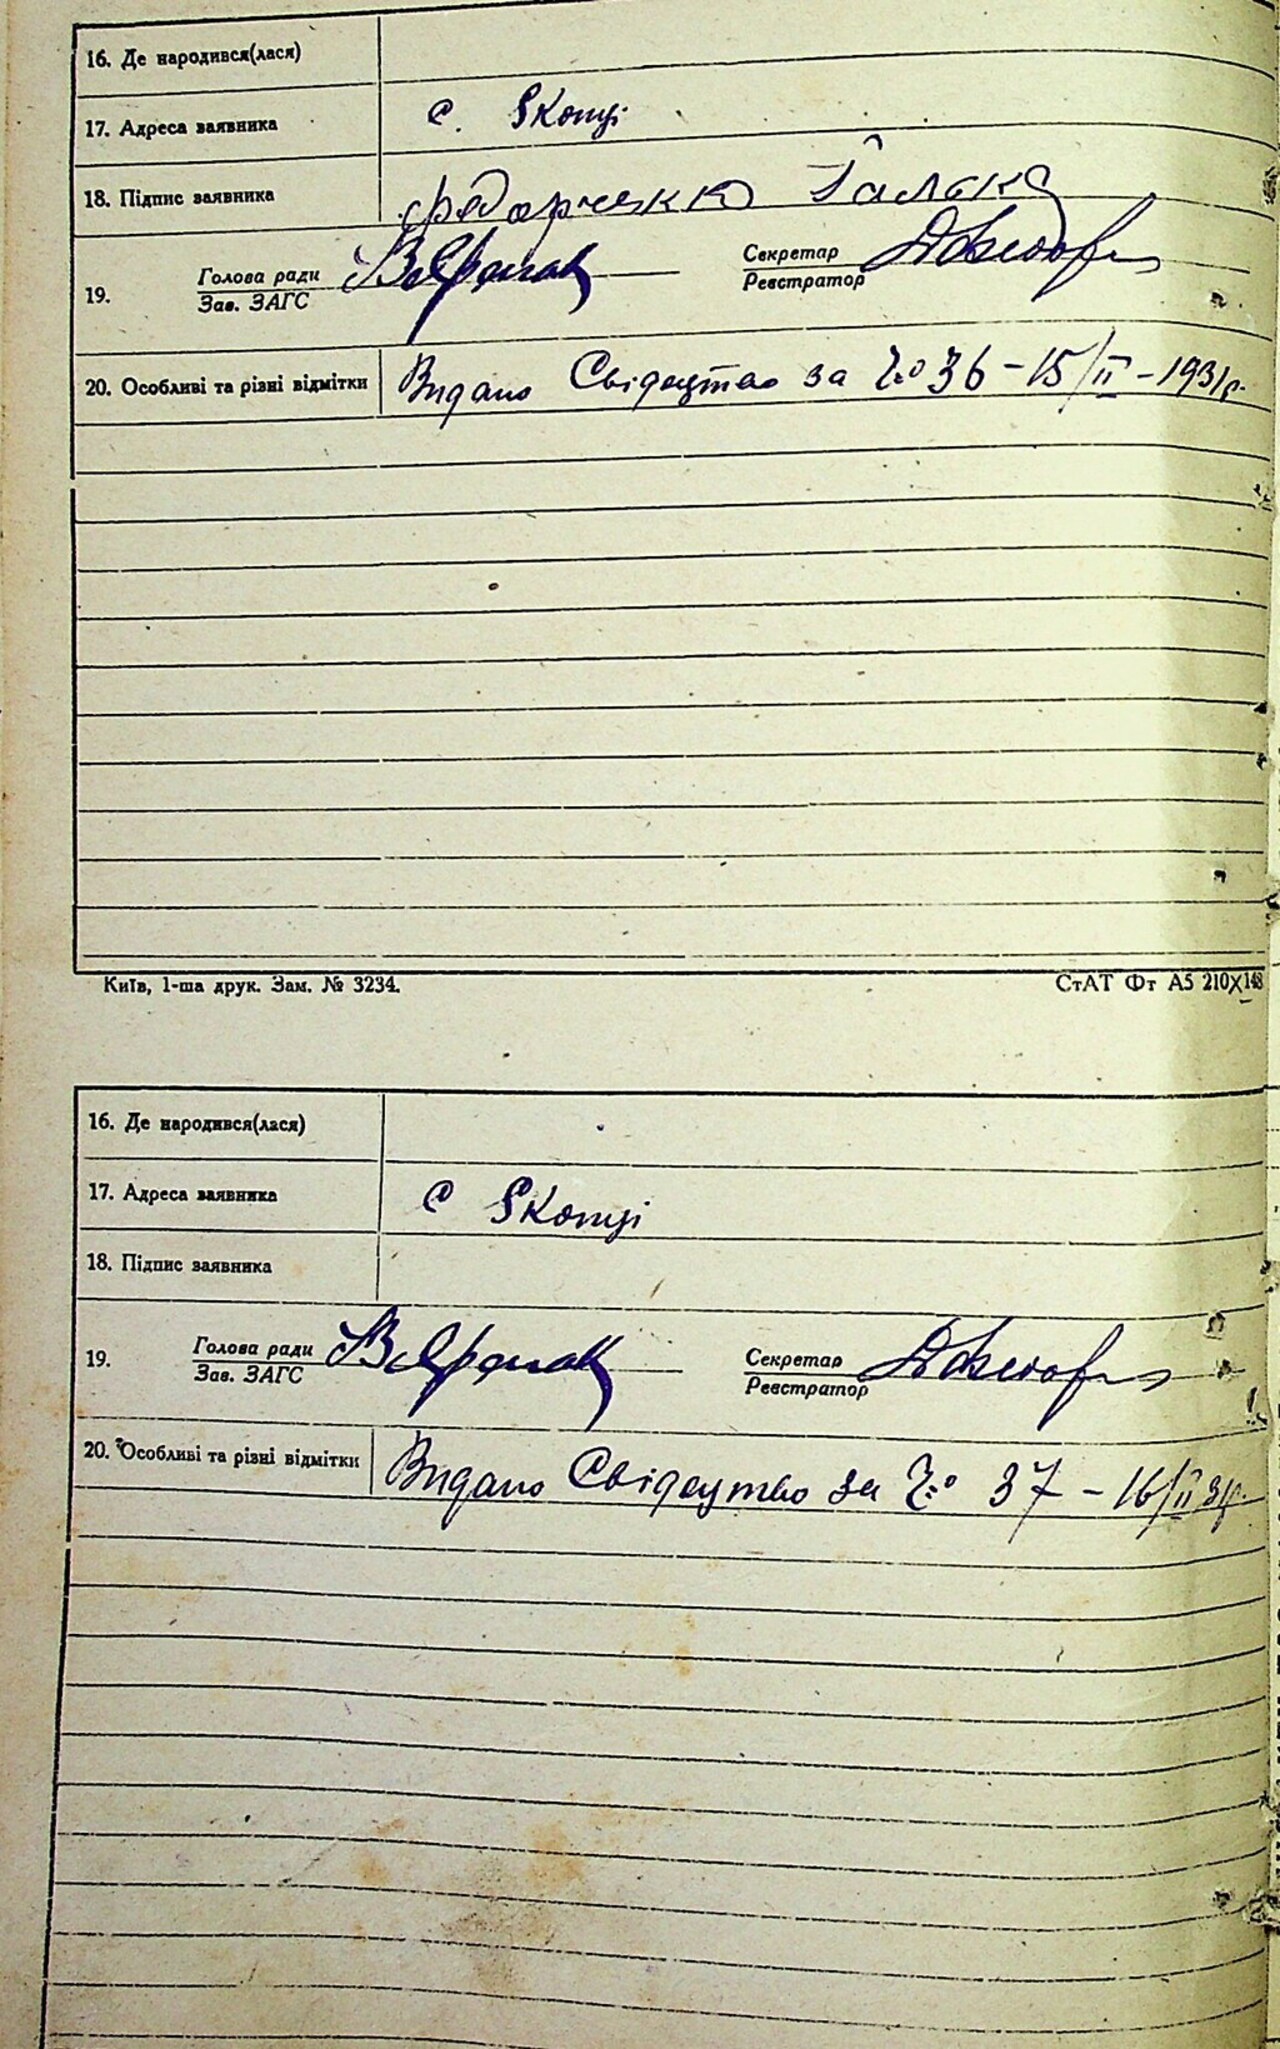 16. Де народився(лася)
17. Адреса заявника с. Якопці
18. Підпис заявника Федорченко
Голова ради Секретар
19.
Зав. ЗАГС Реєстратор
20. Особливі та різні відмітки Видано Свідоцтво за Ч:о 36 – 15/II – 1931р.
Київ, 1-ша друк. Зам. № 3234. СтАТ Фт А5 210X148
16. Де народився(лася)
17. Адреса заявника с Якопці
18. Підпис заявника
Голова ради Секретар
19.
Зав. ЗАГС Реєстратор
20. Особливі та різні відмітки Видано Свідоцтво за Ч:о 37 – 16/II 31р.